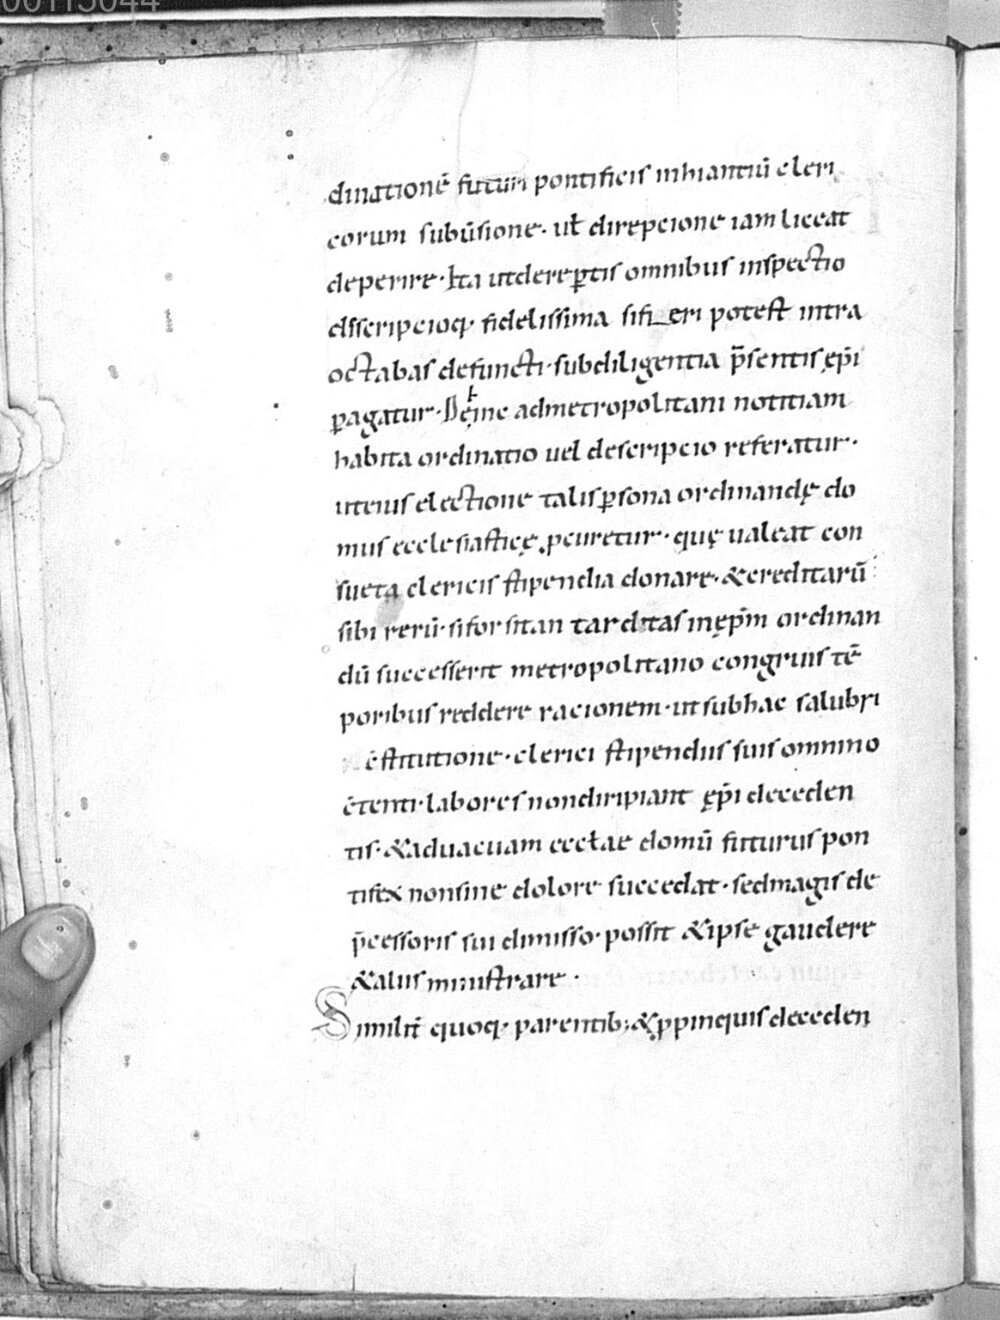 00115044
dinationē futuri pontificis inhiantiū cleri
corum subūsione· uꝉ direpcione iam liceat
deperire· Ita utdereꝑtis omnibus inspectio
dsscripcioq· fidelissima sifi eri potest intra
octabas defuncti· subdiligentia p̄sentis ęp̄i
ꝑagatur· admetropolitani notitiam
habita ordinatio uel descripcio referatur·
uteius electione talis ꝑsona ordinandę do
mus ecclesiasticę ꝓcuretur· quę ualeat con
sueta clericis stipendia donare· &creditarū
sibi rerū· siforsitan tarditas inęp̄m ordinan
dū successerit metropolitano congruis tē
poribus reddere racionem· ut subhac salubri
c̄stitutione· clerici stipendiis suis omnino
c̄tenti· labores nondiripiant ęp̄i deceden
tis· &aduacuam eccꝉae domū futurus pon
tifex nonsine dolore succedat· sedmagis de
p̄cessoris sui dimisso· possit &ipse gaudere
&aliis ministrare·
Similit̄ quoq· parentib; &ꝓpinquis deceden